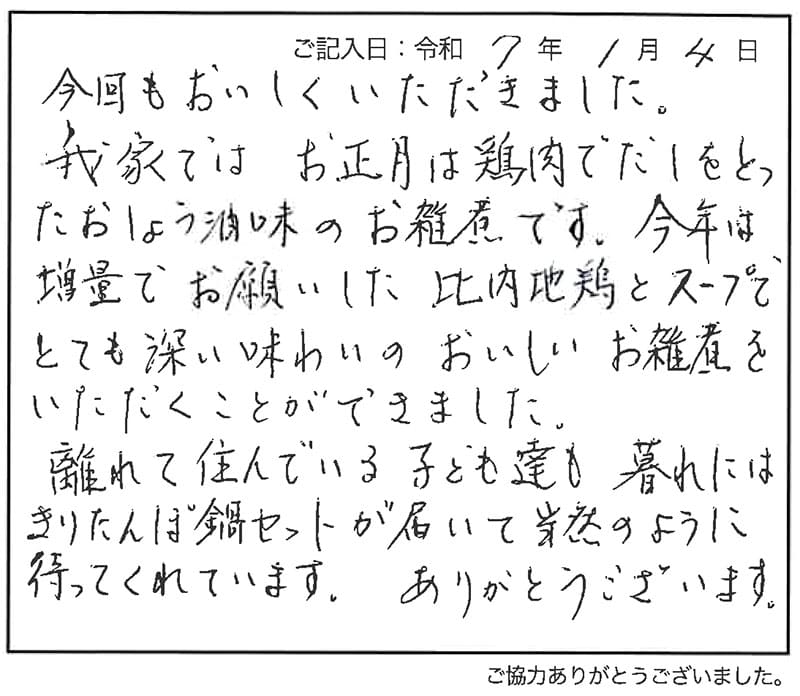 ご記入日：令和 7 年 1 月 4 日
今回もおいしくいただきました。
我家では お正月は鶏肉でだしをとっ
たおしょう油味のお雑煮です。今年は
増量でお願いした 比内地鶏とスープで
とても深い味わいの おいしい お雑煮を
いただくことができました。
離れて住んでいる子ども達も 暮れには
きりたんぽ鍋セットが届いて当然のように
待ってくれています。 ありがとうございます。
ご協力ありがとうございました。